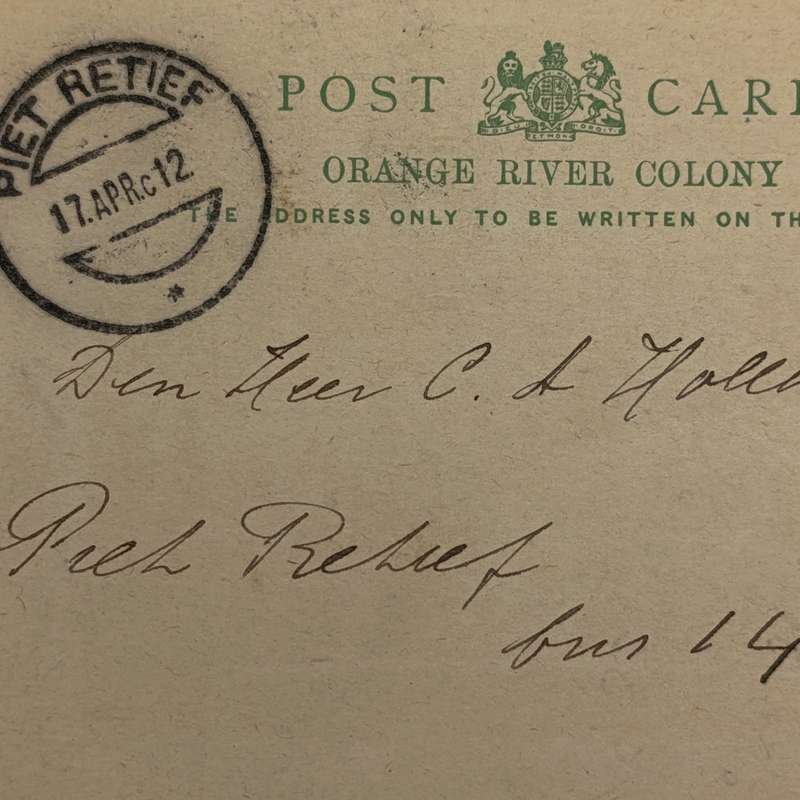 PIET RETIEF
17.APR.C12.
*
POST CARD
DIEU ET MON DROIT
ORANGE RIVER COLONY
THE ADDRESS ONLY TO BE WRITTEN ON TH
Den Heer C. A Holl
Piet Retief
bus 14